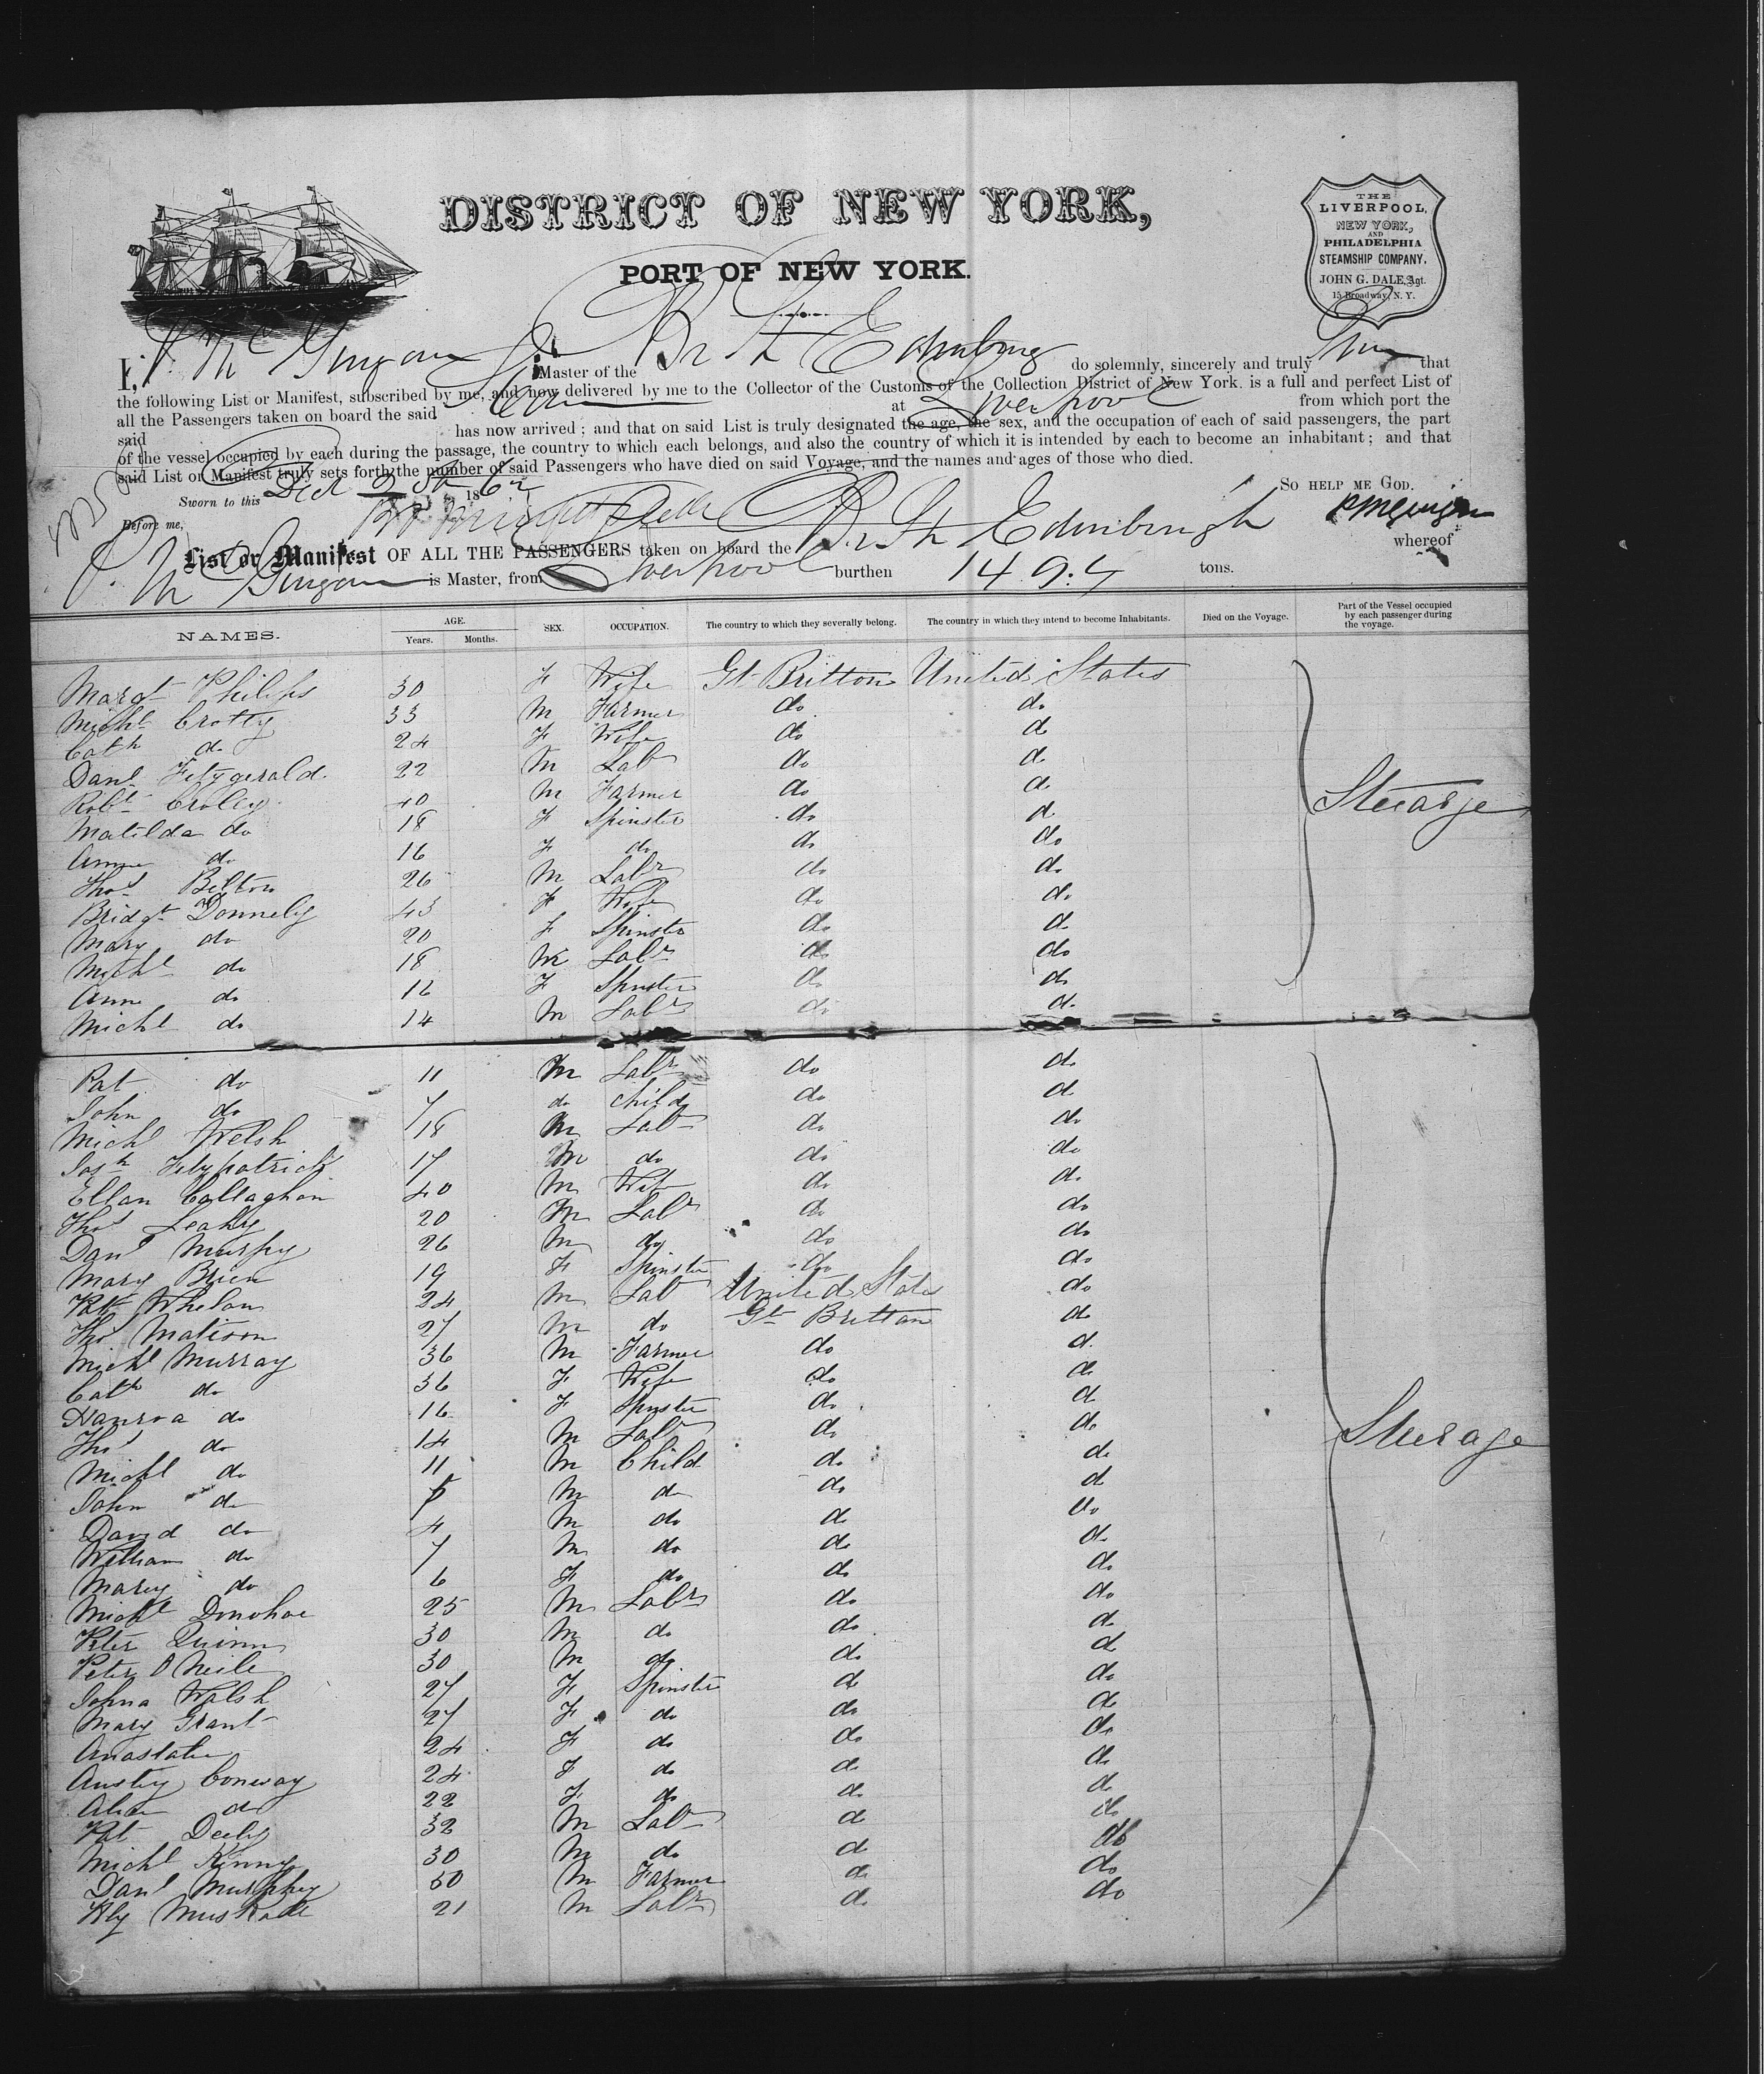 DISTRICT OF NEW YORK,
PORT OF NEW YORK.
THE
LIVERPOOL,
NEW YORK,
AND
PHILADELPHIA
STEAMSHIP COMPANY.
JOHN G. DALE, Agt.
15 Broadway, N. Y.
I, Master of the Br St Edinburg do solemnly, sincerely and truly that
the following List or Manifest, subscribed by me, and now delivered by me to the Collector of the Customs of the Collection District of New York. is a full and perfect List of
all the Passengers taken on board the said at Liverpool from which port the
said has now arrived ; and that on said List is truly designated the age, the sex, and the occupation of each of said passengers, the part
of the vessel occupied by each during the passage, the country to which each belongs, and also the country of which it is intended by each to become an inhabitant ; and that
said List or Manifest truly sets forth the number of said Passengers who have died on said Voyage, and the names and ages of those who died.
Sworn to this 186 SO HELP ME GOD.
Before me,
List or Manifest OF ALL THE PASSENGERS taken on board the Br St Edinburgh whereof
is Master, from Liverpool burthen tons.
NAMES. AGE. Years. Months. SEX. OCCUPATION. The country to which they severally belong. The country in which they intend to become Inhabitants. Died on the Voyage. Part of the Vessel occupied by each passenger during the voyage.
Margt Philips 30 F Wife Gt Britton United States
Michl Crotty 33 M Farmer do do
Cath do 24 F Wife do do
Danl Fitzgerald 22 M Lab do do
Robt Croley 40 M Farmer do do Stearge
Matilda do 18 F Spinster do do
Anne do 16 F do do do
Thos Belton 26 M Labr do do
Bridgt Donnely 43 F Wife do do
Mary do 20 F Spinster do do
Michl do 18 M Labr do do
Ann do 16 F Spinster do do
Michl do 14 M Labr do do
Pat do 11 M Labr do do
John do 7 do Child do do
Michl Welsh 18 M Labr do do
Josh Fitzpatrick 17 M do do do
Ellan Callaghan 40 M Wife do do
Thos Leahy 20 M Labr do do
Danl Murphy 26 M do do do
Mary Brien 19 F Spinster do do
Patk Whelan 24 M Lab United States do
Thos Matison 27 M do Gt Brittan do
Michl Murray 36 M Farmer do do
Cath do 36 F Wife do do
Hanroa do 16 F Spinster do do
Thos do 14 M Labr do do Steerage
Michl do 11 M Child do do
John do M do do do
David do 4 M do do do
William do 7 M do do do
Mary do 6 F do do do
Michl Donohoe 25 M Labr do do
Peter Quinn 30 M do do do
Peter O Neile 30 M do do do
Johna Walsh 27 F Spinster do do
Mary Grant 27 F do do do
Anastatia 24 F do do do
Austey Conway 24 F do do do
do 22 F do do do
Pat Deely 32 M Labr do do
Michl Kinny 30 M do do do
Danl Murphy 50 M Farmer do do
21 M Labr do do